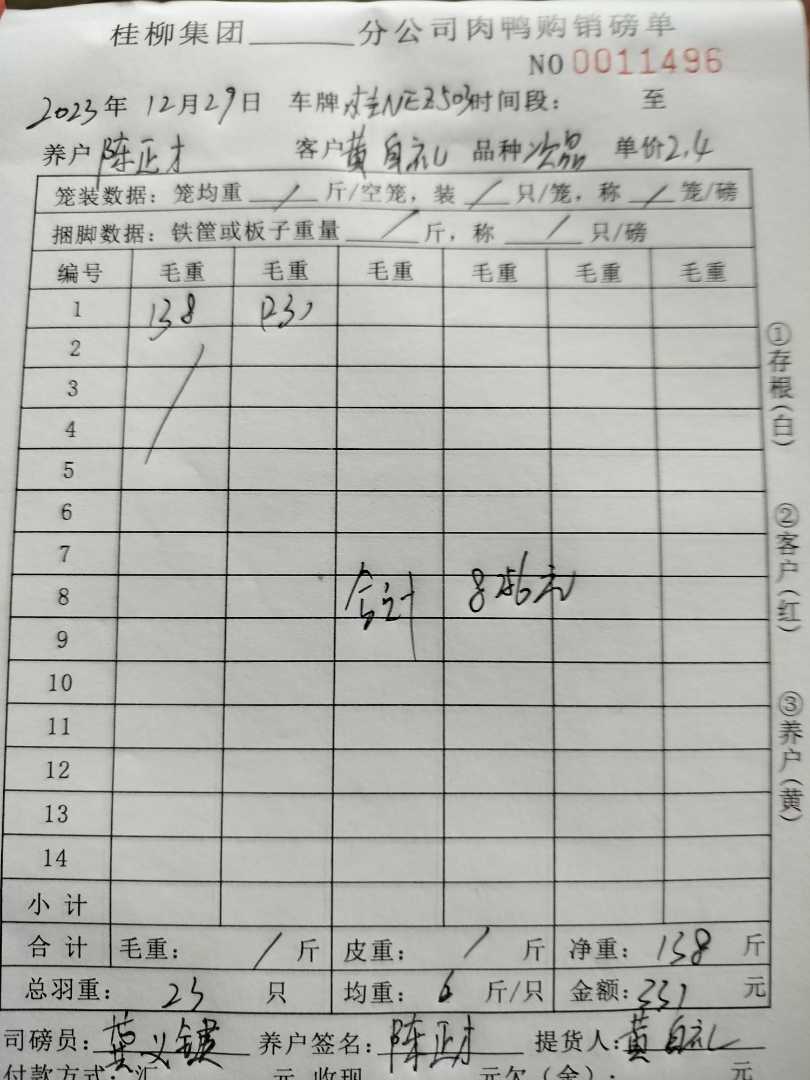 桂柳集团______分公司肉鸭购销磅单
NO 0011496
2023年 12月29日 车牌桂NEZ503时间段: 至
养户 陈正才 客户 黄自礼 品种 次品 单价2.4
笼装数据: 笼均重 / 斤/空笼, 装 / 只/笼, 称 / 笼/磅
捆脚数据: 铁筐或板子重量 / 斤, 称 / 只/磅
编号 毛重 毛重 毛重 毛重 毛重 毛重
1 138
2
3
4
5
6
7
8 合计 元
9
10
11
12
13
14
小计
合计 毛重: / 斤 皮重: / 斤 净重: 138 斤
总羽重: 23 只 均重: 6 斤/只 金额: 331 元
司磅员: 养户签名: 陈正才 提货人: 黄自礼
付款方式: 汇 元 收现 元欠(余): 元
①存根(白)
②客户(红)
③养户(黄)